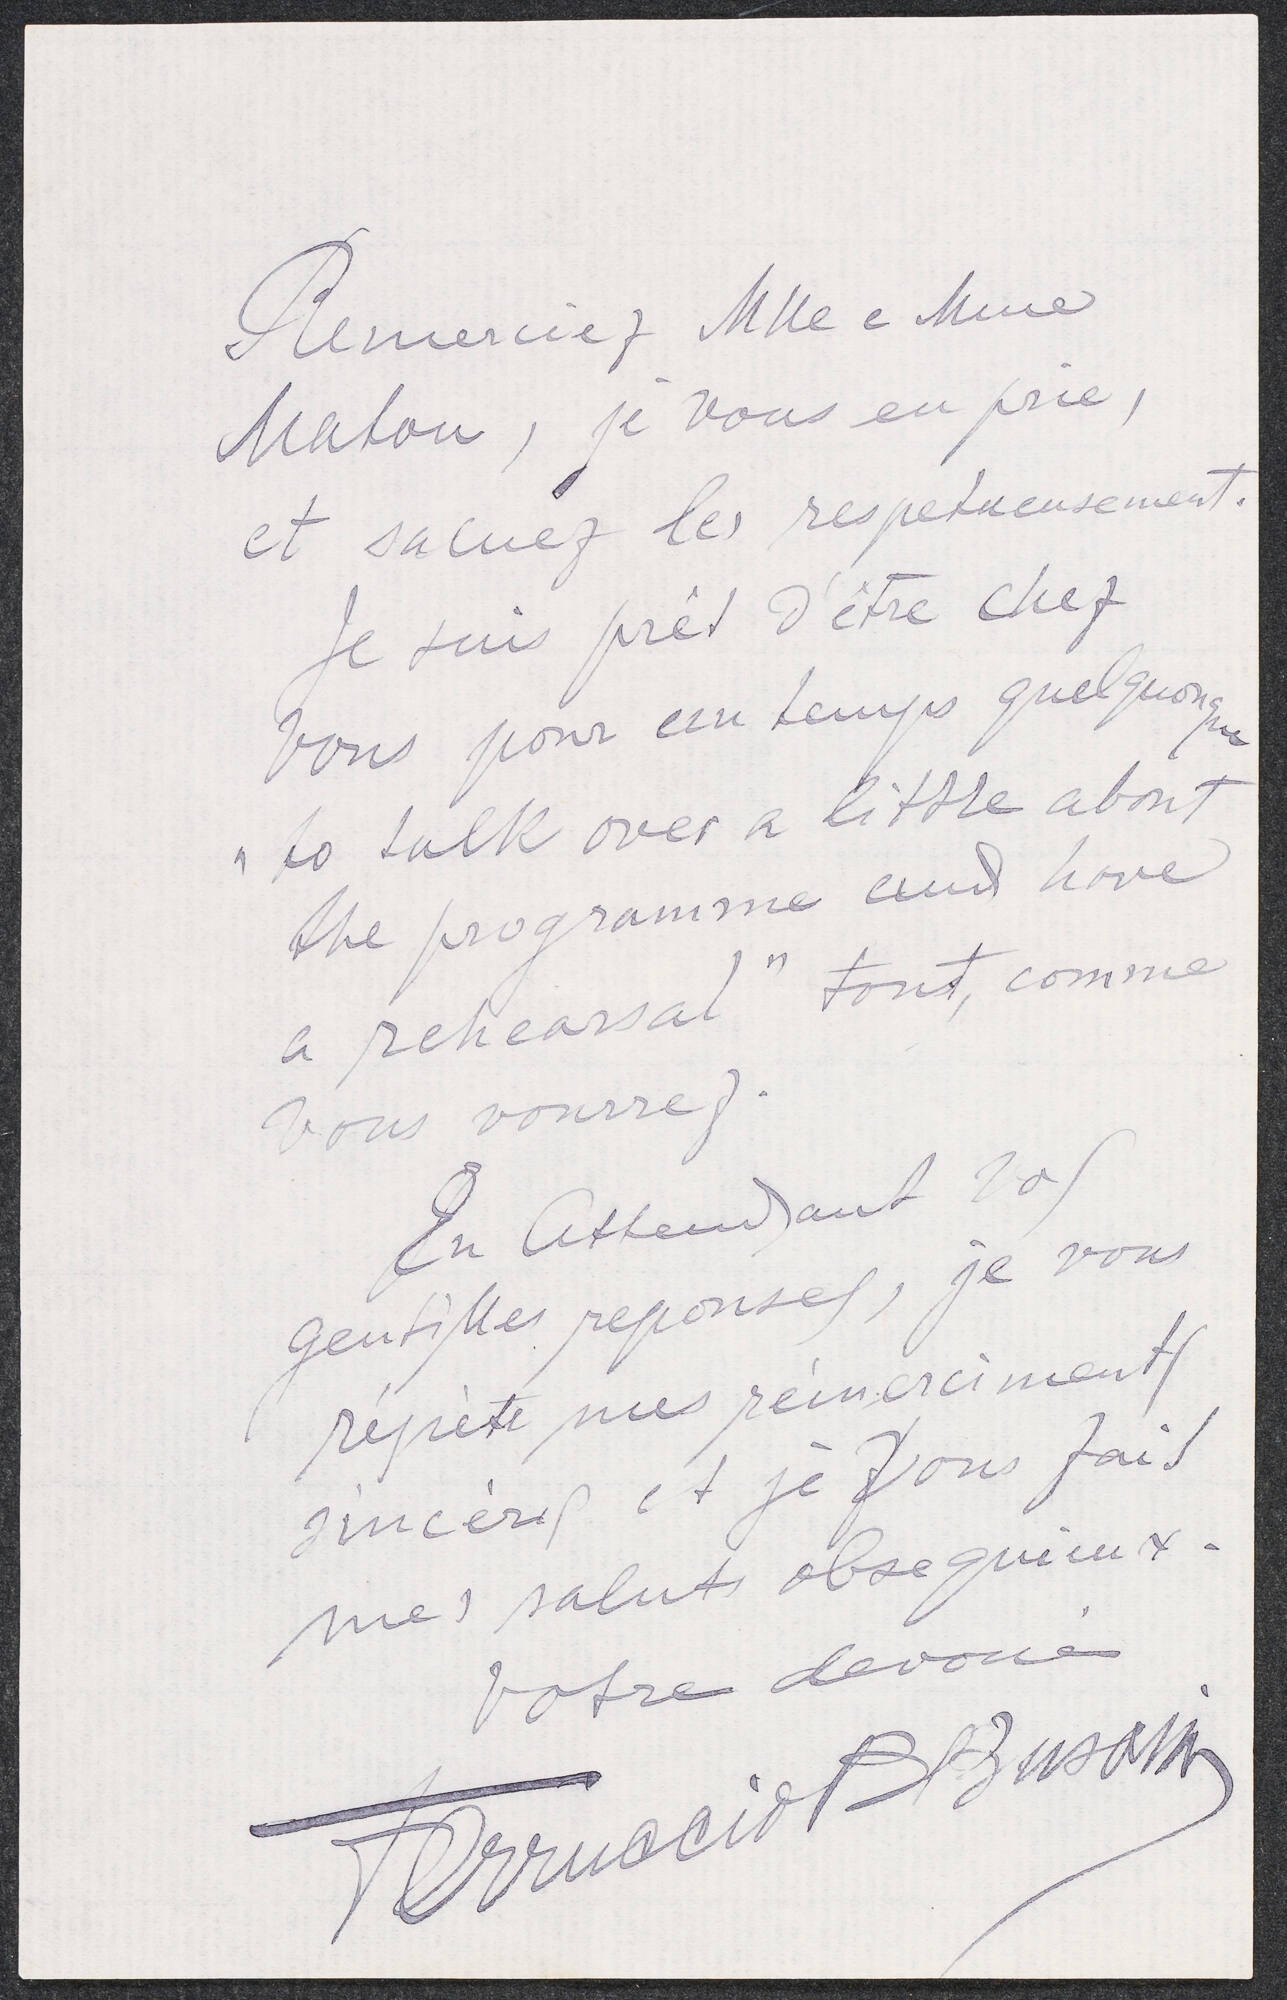 Remerciez Mlle e Mme
Maton, je vous en prie,
et saluez les respetueusement.
Je suis prêt d'être chez
Vous pour un temps quelquonque
"to talk over a little about
the programme and have
a rehearsal" tout, comme
vous vourrez.
En Attendant vos
gentilles reponses, je vous
répète mes rémerciments
sincères et je Vous fait
mes saluts obsequieux.
Votre devoué
Ferruccio B Busoni